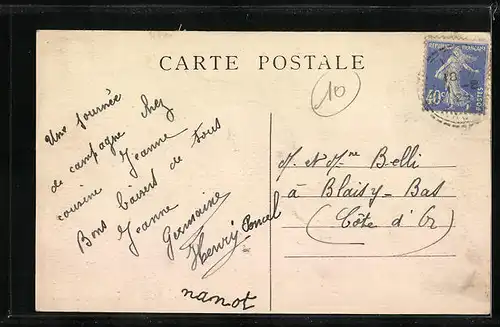 CARTE POSTALE
10
RÉPUBLIQUE FRANÇAISE
40c
POSTES
Une journée
de campagne chez
cousine Jeanne
Bons baisers de tous
Jeanne
Germaine
Henry
nanot
M. et Mme Belli
à Blaisy-Bas
(Côte d'Or)